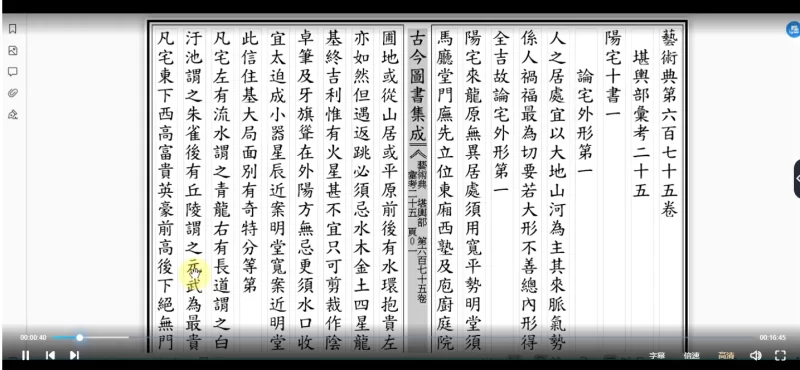 藝術典第六百七十五卷
堪輿部彙考二十五
陽宅十書一
論宅外形第一
人之居處宜以大地山河為主其來脈氣勢
係人禍福最為切要若大形不善總內形得
全吉故論宅外形第一
陽宅來龍原無異居處須用寬平勢明堂須
馬廳堂門廡先立位東廂西塾及庖廚庭院
古今圖書集成
藝術典 堪輿部 第六百七十五卷
彙考二十五 頁0一
圃地或從山居或平原前後有水環抱貴左
亦如然但遇返跳必須忌水木金土四星龍
基終吉利惟有火星甚不宜只可剪裁作陰
卓筆及牙旗聳在外陽方無忌更須水口收
宜太迫成小器星辰近案明堂寬案近明堂
此信住基大局面別有奇特分等第
凡宅左有流水謂之青龍右有長道謂之白
汙池謂之朱雀後有丘陵謂之元武為最貴
凡宅東下西高富貴英豪前高後下絕無門
00:00:40
00:16:45
字幕
倍速
高清